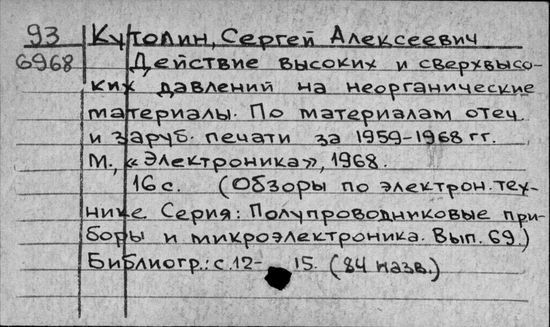 93 Кутолин, Сергей Алексеевич
6968 Действие высоких и сверхвысо-
ких давлений на неорганические
материалы. По материалам отеч.
и заруб. печати за 1959-1968 гг.
М., «Электроника», 1968.
16 с. (Обзоры по электрон. тех-
нике. Серия: Полупроводниковые при-
боры и микроэлектроника. Вып. 69.)
Библиогр.: с. 12- 15. (84 назв.)